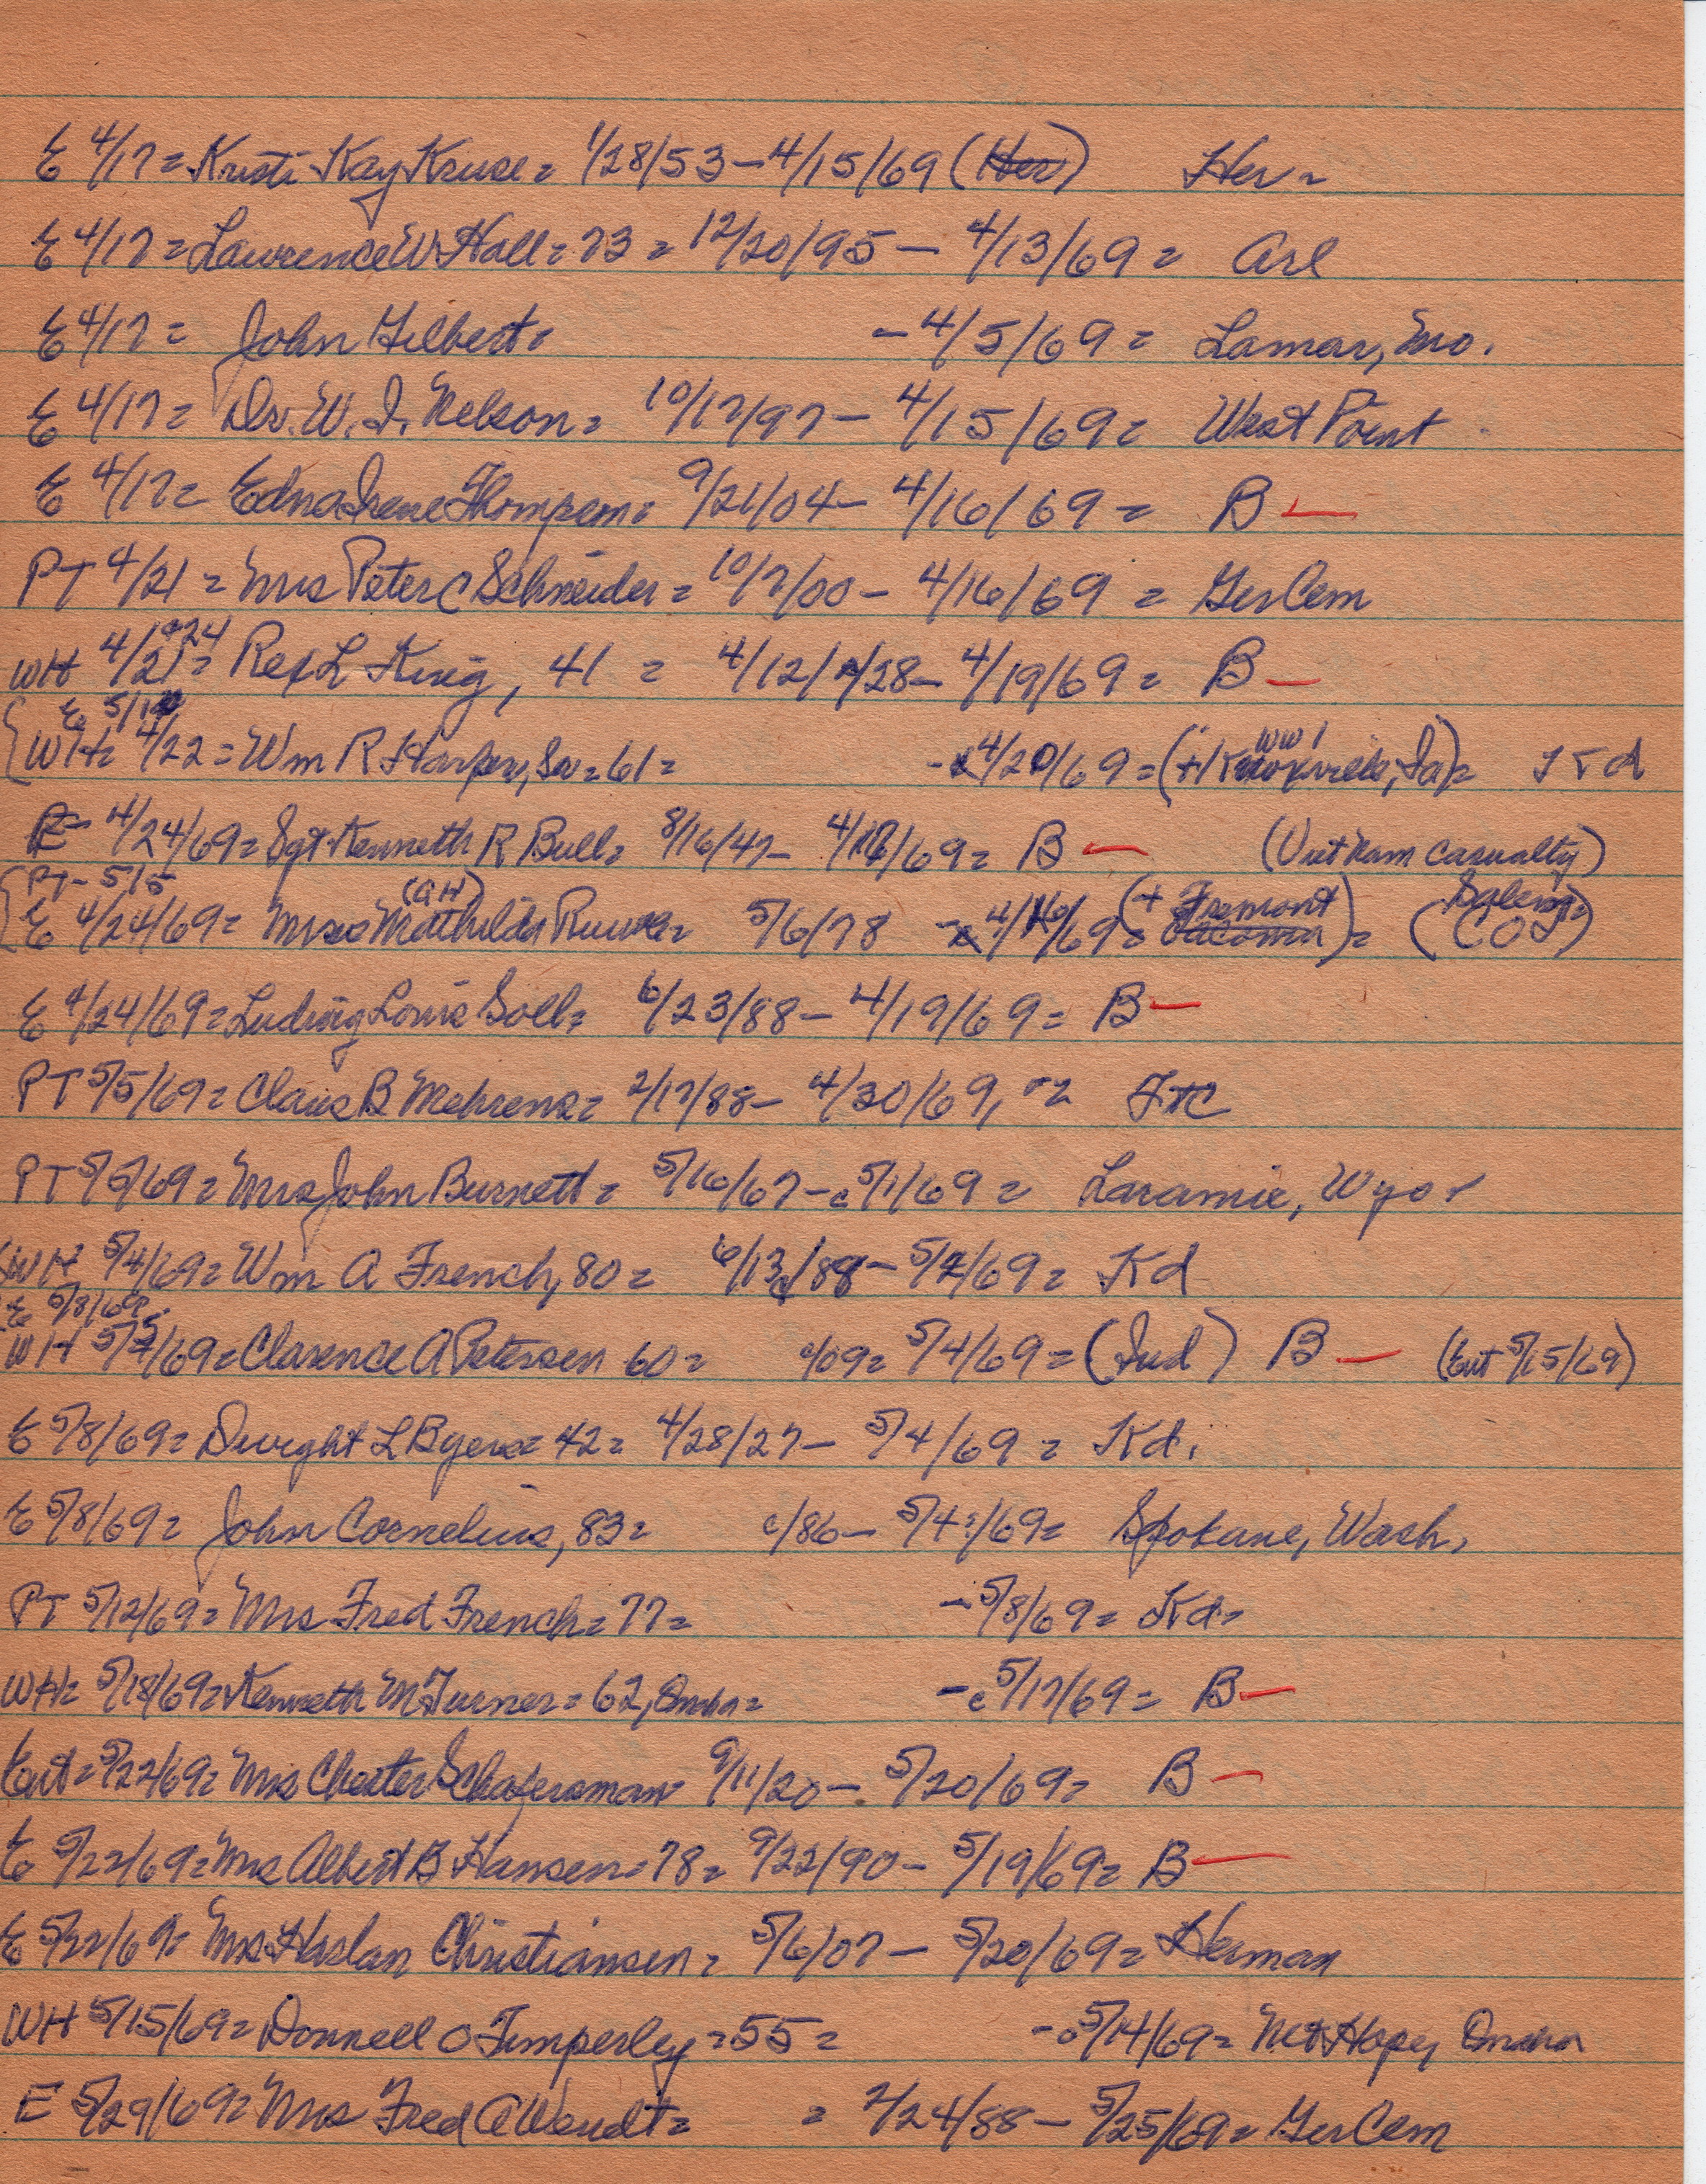 E 4/17 = Kristi Kay Kruse = 1/28/53 – 4/15/69 (Her) Her =
E 4/17 = Lawrence W Hall = 73 = 12/20/95 – 4/13/69 = Arl
E 4/17 = John Gilbert = – 4/5/69 = Lamar, Mo.
E 4/17 = Dr. W. I. Nelson = 10/17/97 – 4/15/69 = West Point
E 4/17 = Edna Irene Thompson = 9/21/04 – 4/16/69 = B —
PT 4/21 = Mrs Peter C Schneider = 10/7/00 – 4/16/69 = Ger Cem
WH 4/21 = Rex L King, 41 = 4/12/28 – 4/19/69 = B —
WH = 4/22 = Wm R Harper, Sr = 61 = – 4/20/69 = (+ Knoxville, Ia) = WW 1 Kd
E 4/24/69 = Sgt Kenneth R Bull = 8/16/47 – 69 = B — (Viet Nam Casualty)
PT – 5/5
E 4/24/69 = Mathilda (GH) 5/6/78 – 69 (+ Fremont) = Salem
E 4/24/69 = Ludwig Louis Soll = 6/23/88 – 4/19/69 = B —
PT 5/5/69 = Claus B Mehrens = 2/17/88 – 4/30/69, =
PT 5/5/69 = Mrs John Burnett = 5/16/67 – c 5/1/69 = Laramie, Wyo
WH 5/4/69 = Wm A French, 80 = 6/13/88 – 5/2/69 = Kd
E 5/8/69
WH 5/5/69 = Clarence A Petersen 60 = c/09 = 5/4/69 = (Ind) B — (Ent 5/15/69)
E 5/8/69 = Dwight L Byers = 42 = 4/28/27 – 5/4/69 = Kd.
E 5/8/69 = John Cornelius, 83 = c/86 – 5/4?/69 = Spokane, Wash,
PT 5/12/69 = Mrs Fred French = 77 = – 5/8/69 = Kd =
WH = 5/18/69 = Kenneth M Turner = 62, Omaha = – c 5/17/69 = B —
Ent = 5/22/69 = Mrs Chester Schafersman = 9/11/20 – 5/20/69 = B —
E 5/22/69 = Mrs Albert B Hansen = 78 = 9/22/90 – 5/19/69 = B —
E 5/22/69 = Mrs Harlan Christiansen = 5/6/07 – 5/20/69 = Herman
WH 5/15/69 = Donnell O Timperley = 55 = – c 5/14/69 = Mt Hope, Omaha
E 5/29/69 = Mrs Fred A Wendt = = 2/24/88 – 5/25/69 = Ger Cem